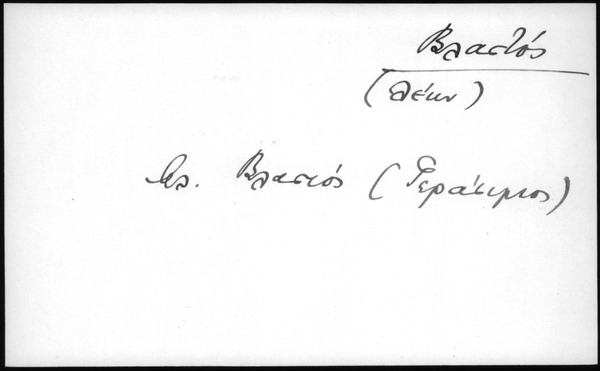 Βλαστός
(Λέων)
βλ. Βλαστός (Γεράσιμος)